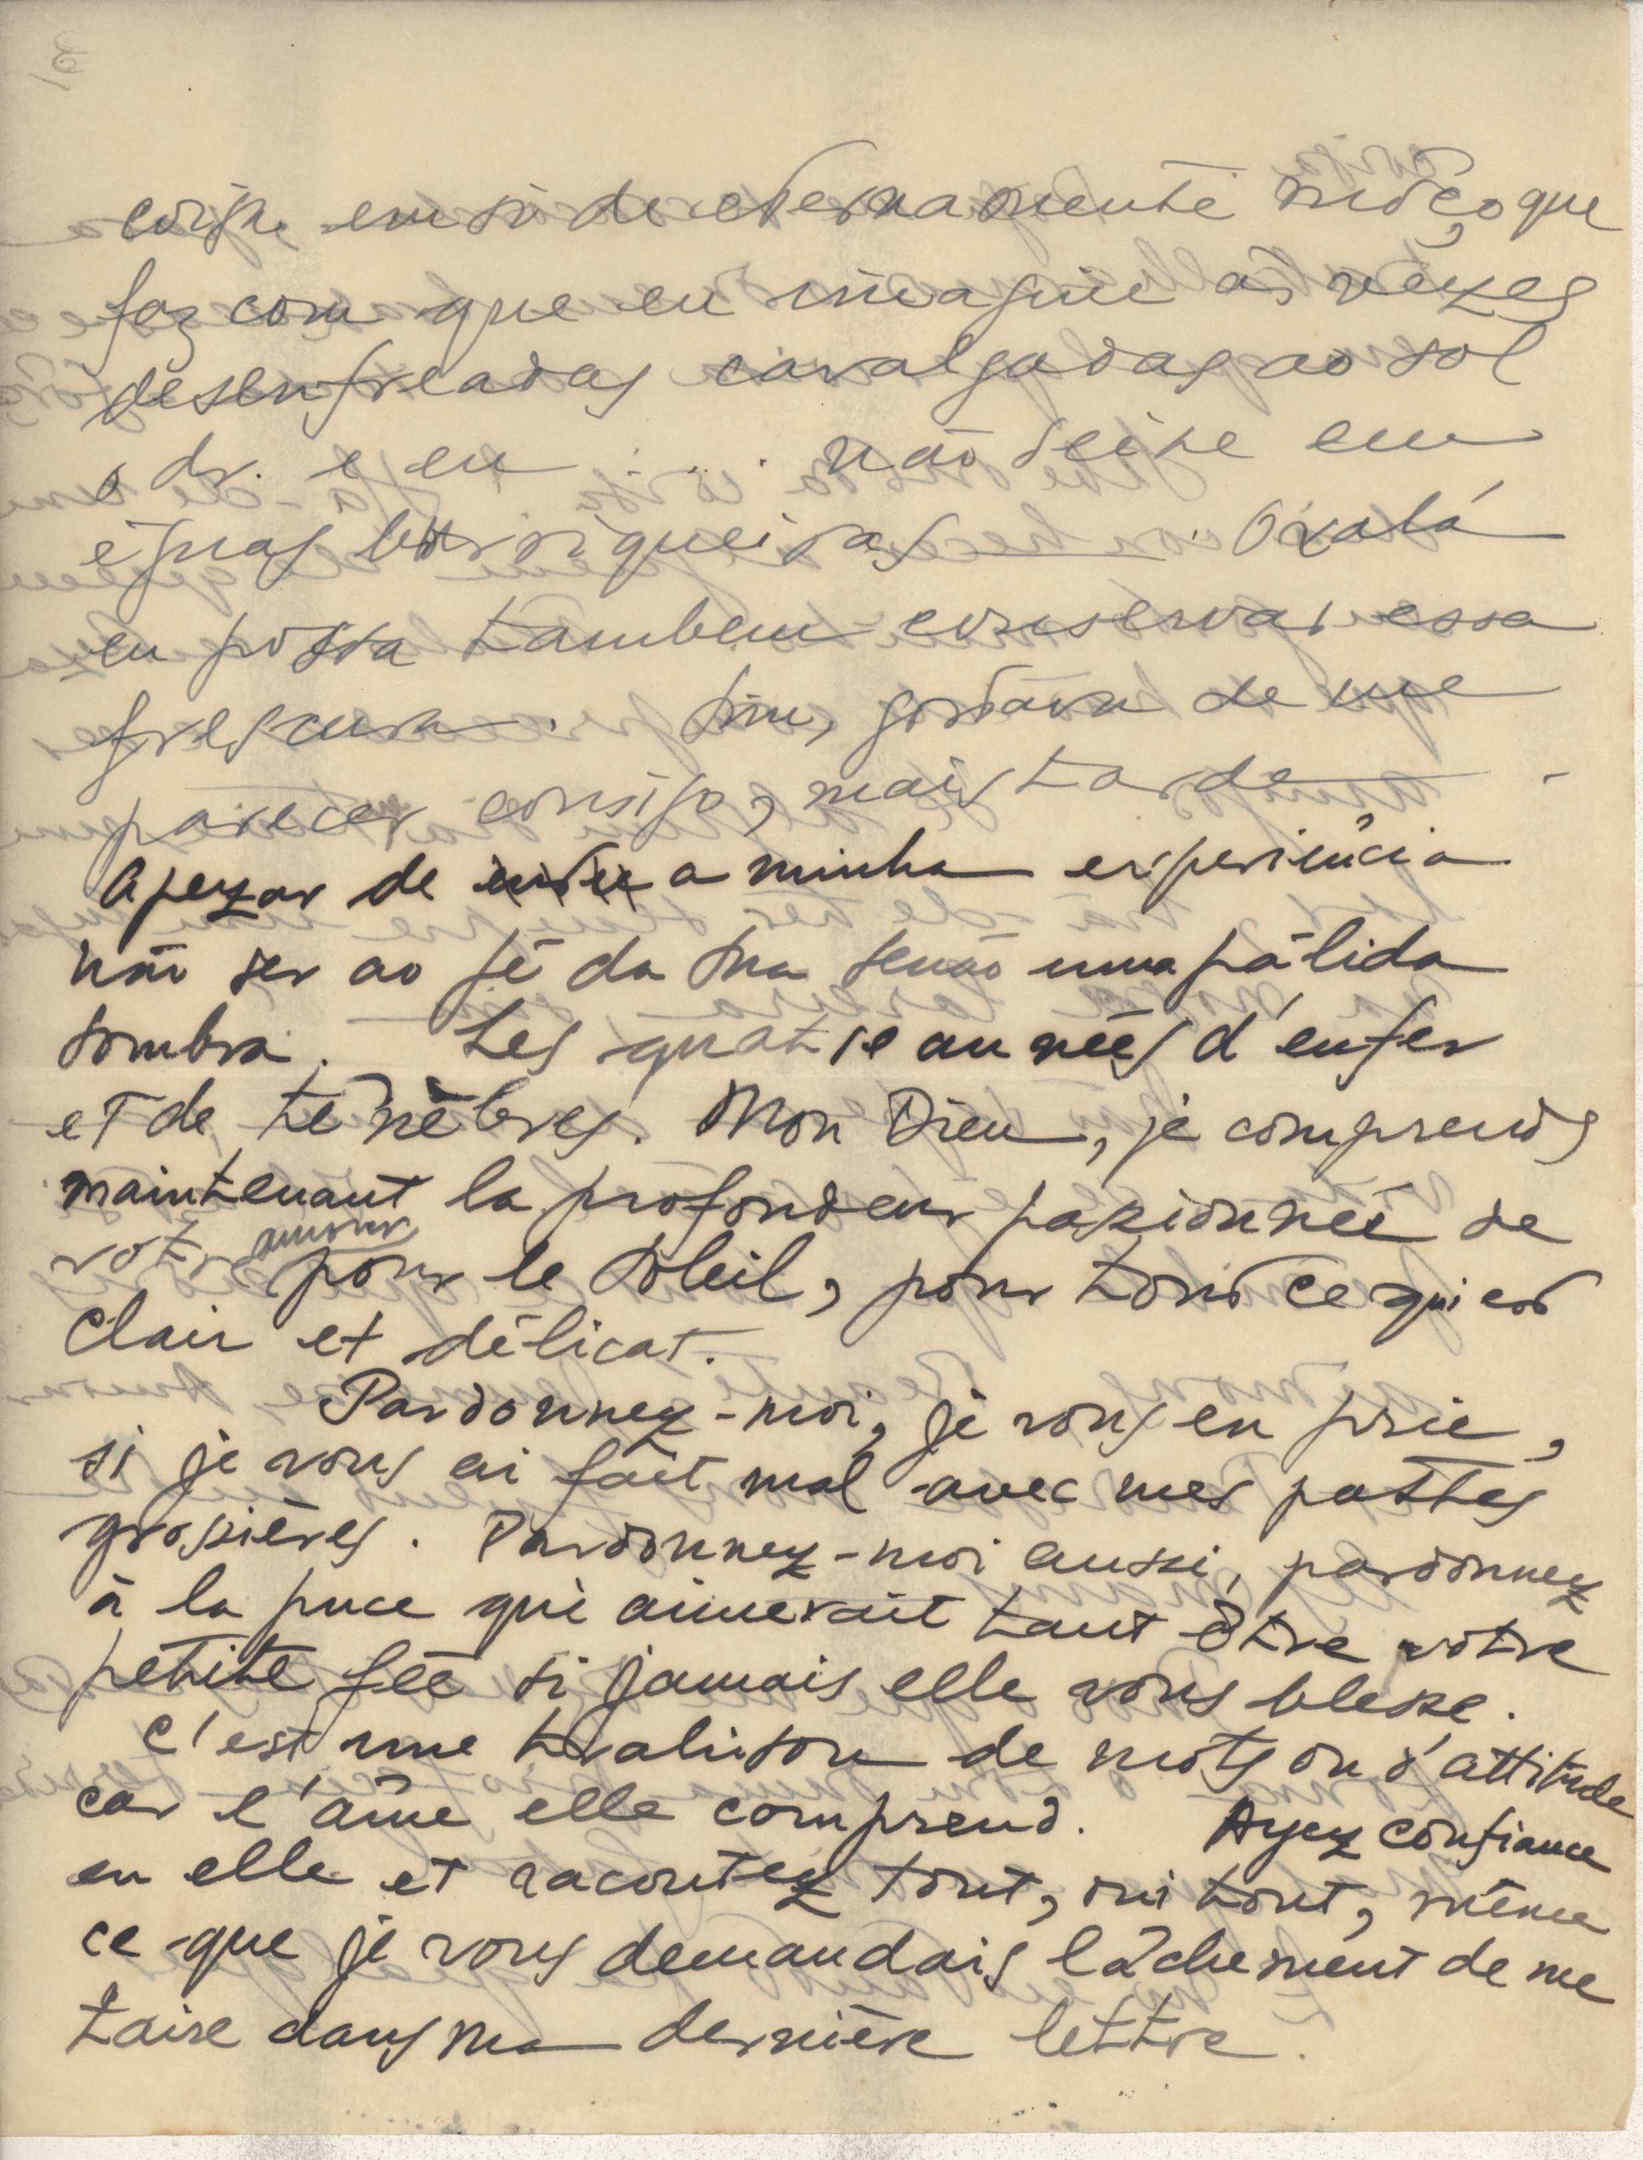 coisa em si de eternamente moço que
faz com que eu imagine ás vezes
desenfreadas cavalgadas ao sol
o dr. e eu .... não sei se em
éguas borriqueiras. Oxalá
eu possa tambem conservar essa
frescura. Sim, gostava de me
parecer consigo, mais tarde.
Apezar de a minha experiência
não ser ao pé da sua senão uma pálida
sombra. Les quatre années d'enfer
et de ténèbres. Mon Dieu, je comprends
maintenant la profondeur passionnée de
votre amour pour le soleil, pour tout ce qui est
clair et délicat.
Pardonnez-moi, je vous en prie,
si je vous ai fait mal avec mes pattes
grossières. Pardonnez-moi aussi, pardonnez
à la puce qui aimerait tant être votre
petite fée si jamais elle vous blesse.
C'est une trahison de mots ou d'attitude
car l'âme elle comprend. Ayez confiance
en elle et racontez tout, oui tout, même
ce que je vous demandais lâchement de me
taire dans ma dernière lettre.